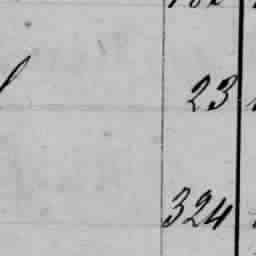 23
324